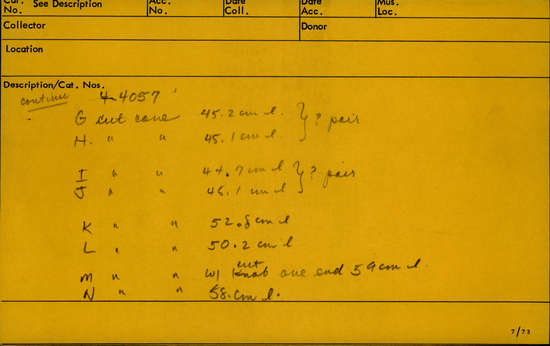 Cat. No. See Description Acc. No. Date Coll. Date Acc. Mus. Loc.
Collector Donor
Location
Description/Cat. Nos.
continue 4-4057
G cut cane 45.2 cm l } ? pair
H. " " 45.1 cm l.
I " " 44.7 cm l } ? pair
J " " 46.1 cm l
K " " 52.8 cm l
L " " 50.2 cm l
M " " w/ cut knob one end 59 cm l.
N " " 58. cm l.
7/73